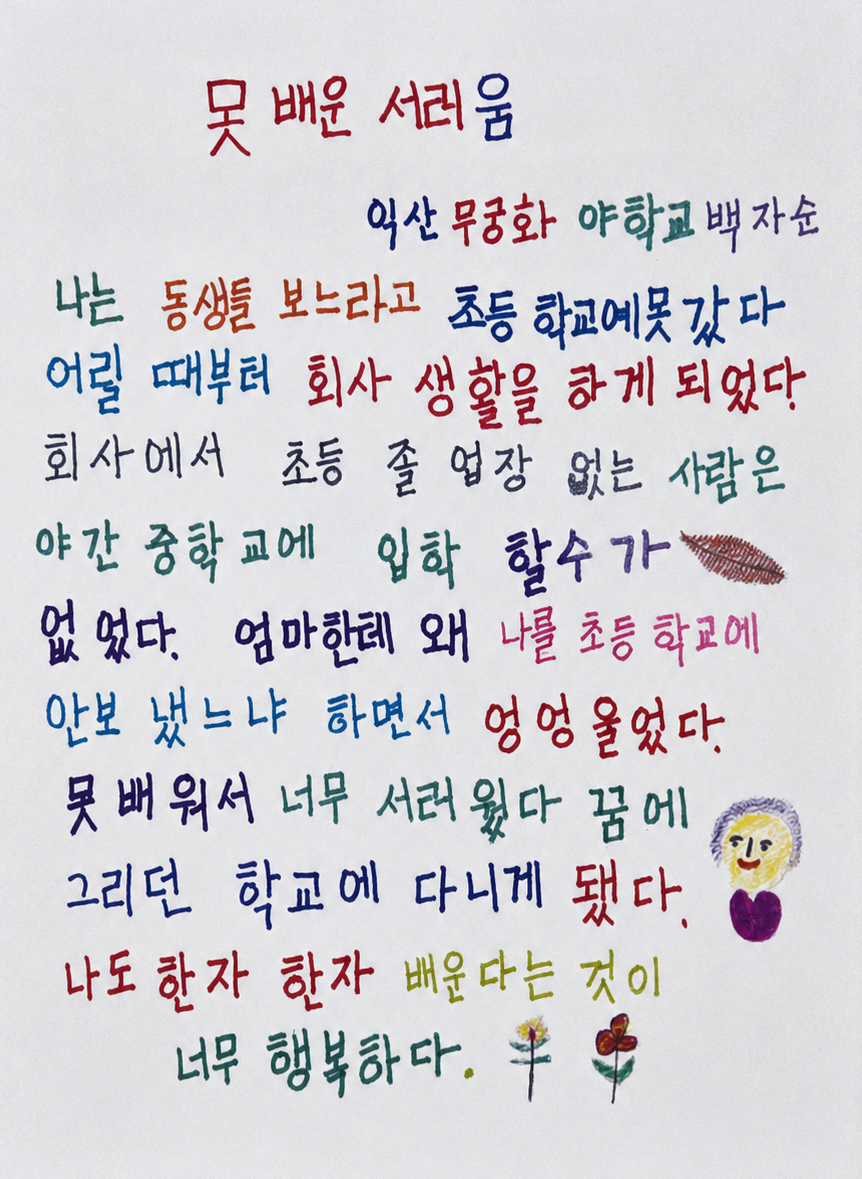 못 배운 서러움
익산 무궁화 야학교 백자순
나는 동생들 보느라고 초등 학교에못 갔 다
어릴 때부터 회사 생활을 하게 되었다.
회사에서 초등 졸 업장 없는 사람은
야간 중학교에 입학 할수 가
없었다. 엄마한테 왜 나를 초등 학교에
안보 냈느냐 하면서 엉엉 울었다.
못 배워서 너무 서러웠다 꿈에
그리던 학교에 다니게 됐다.
나도 한자 한자 배운다는 것이
너무 행복하다.